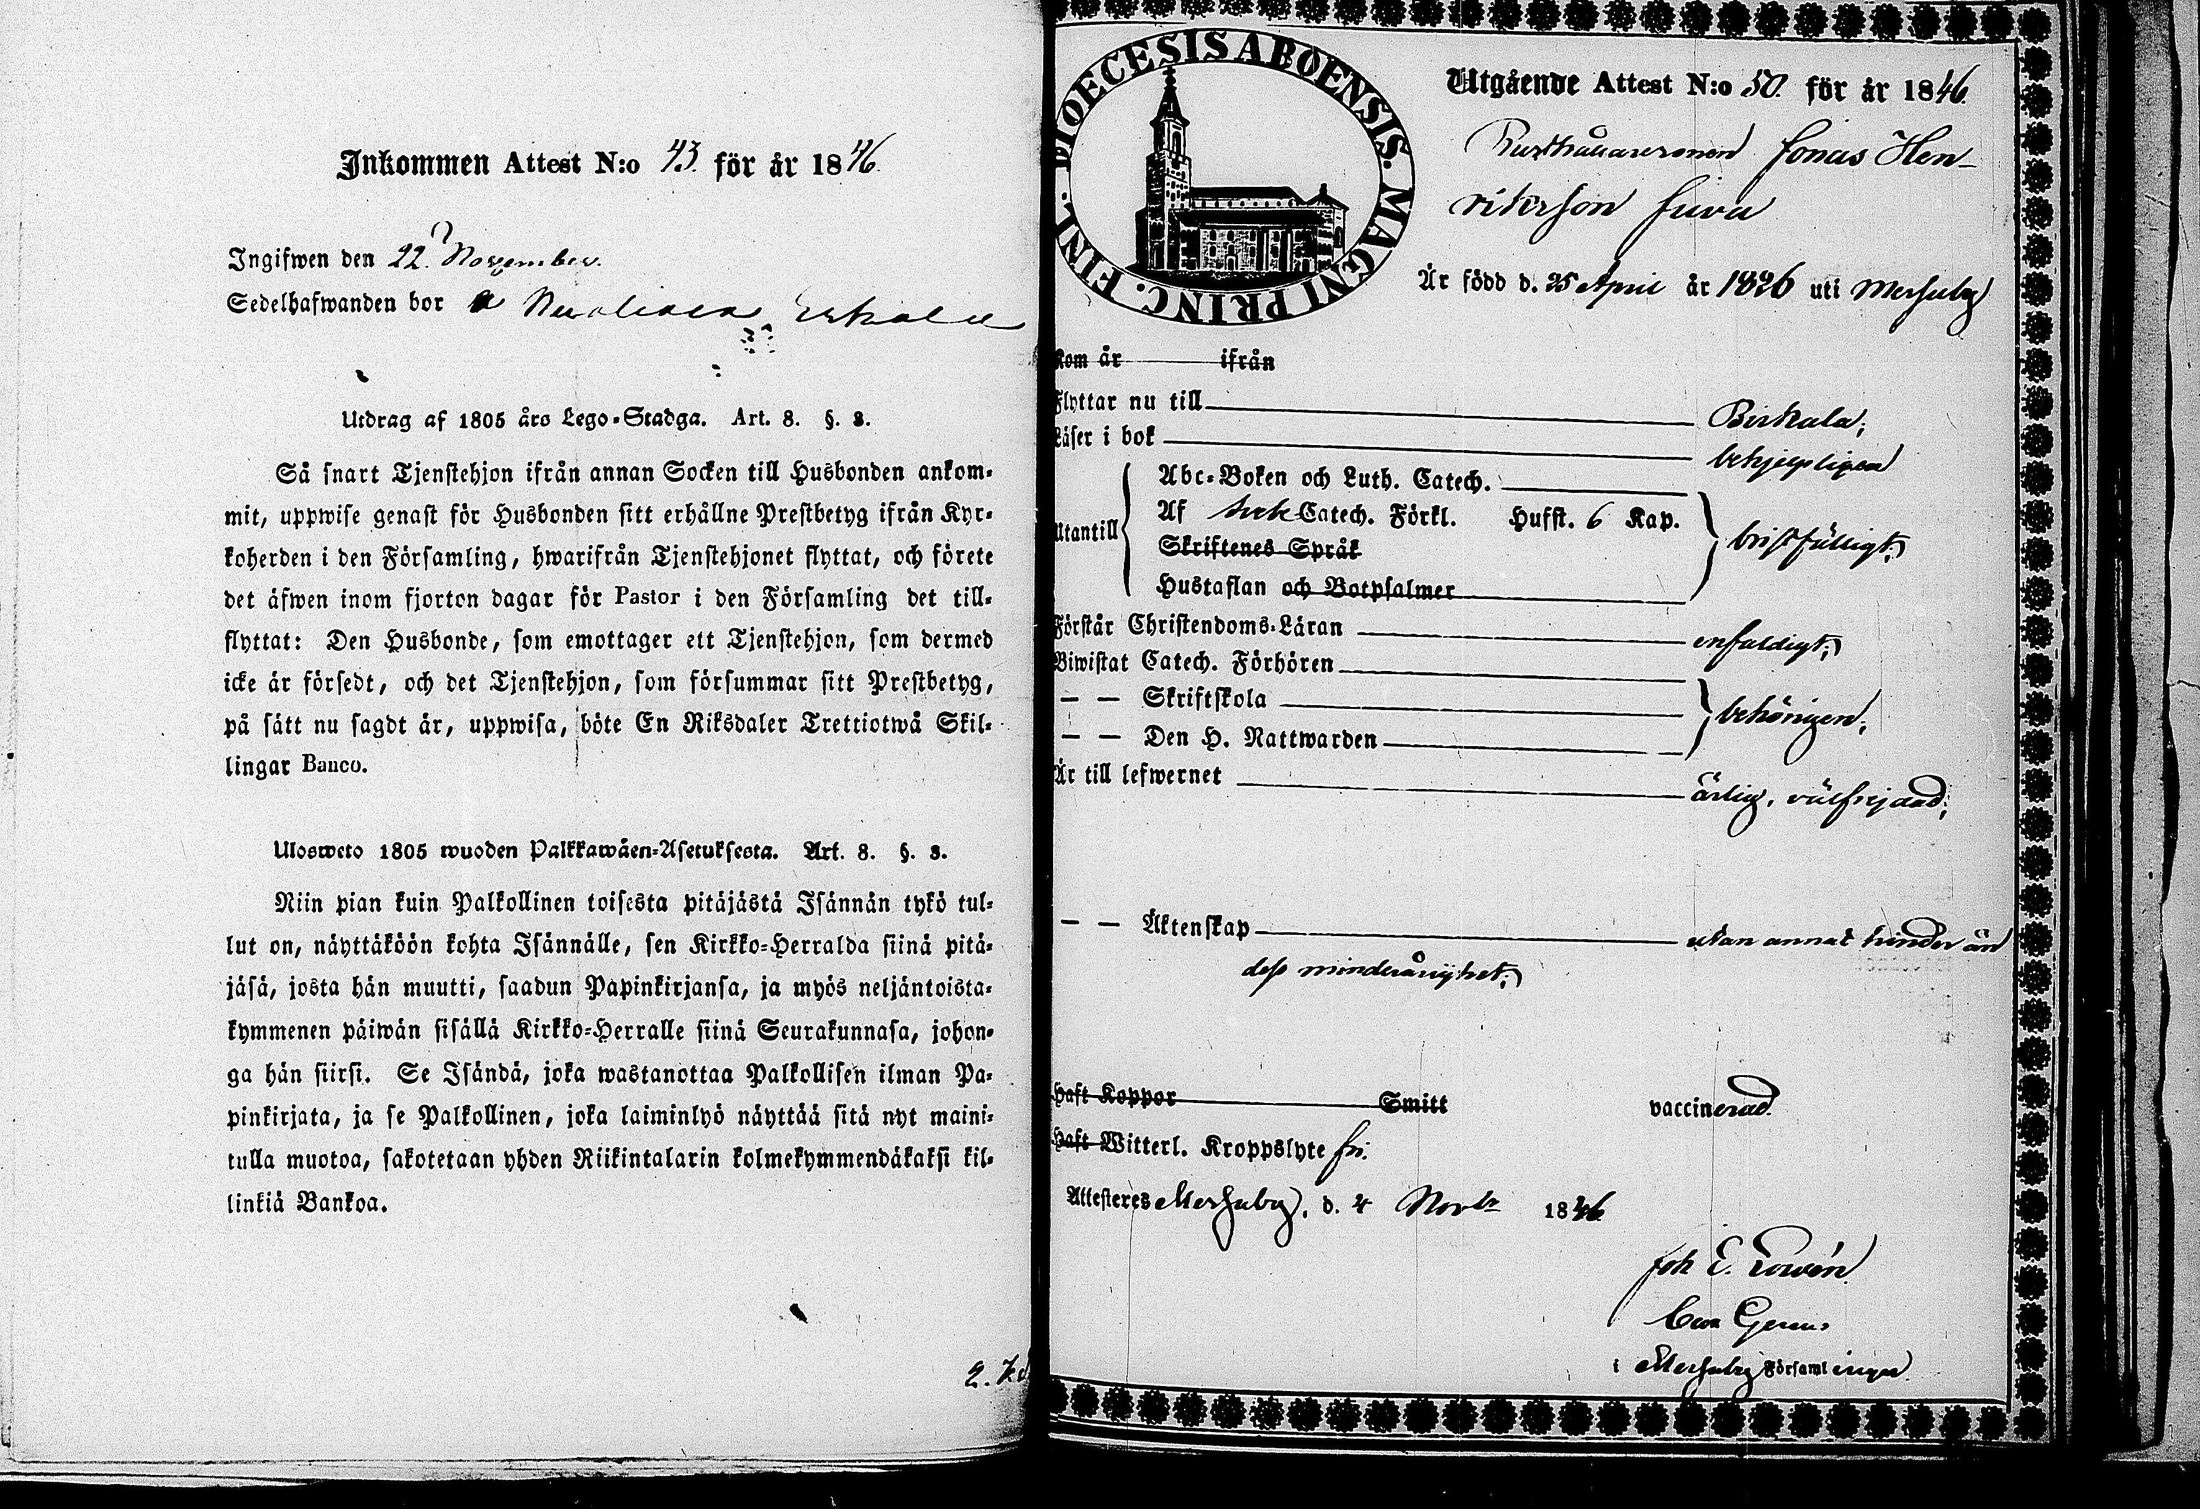 Inkommen Attest N:o 43. för år 1846.
Ingifwen den 22. November.
Sedelhafwanden bor
Utdrag af 1805 års Lego-Stadga. Art. 8. §. 3.
Så snart Tjenstehjon ifrån annan Socken till Husbonden ankom-
mit, uppwise genast för Husbonden sitt erhållne Prestbetyg ifrån Kyr-
koherden i den Församling, hwarifrån Tjenstehjonet flyttat, och förete
det äfwen inom fjorton dagar för Pastor i den Församling det till-
flyttat: Den Husbonde, som emottager ett Tjenstehjon, som dermed
icke är försedt, och det Tjenstehjon, som försummar sitt Prestbetyg,
på sätt nu sagdt är, uppwisa, böte En Riksdaler Trettiotwå Skil-
lingar Banco.
Ulosweto 1805 wuoden Palkkawäen-Asetuksesta. Art. 8. §. 3.
Niin pian kuin Palkollinen toisesta pitäjästä Isännän tykö tul-
lut on, näyttäköön kohta Isännälle, sen Kirkko-Herralda siinä pitä-
jäsä, josta hän muutti, saadun Papinkirjansa, ja myös neljäntoista-
kymmenen päiwän sisällä Kirkko-Herralle siinä Seurakunnasa, johon-
ga hän siirsi. Se Isändä, joka wastanottaa Palkollisen ilman Pa-
pinkirjata, ja se Palkollinen, joka laiminlyö näyttää sitä nyt maini-
tulla muotoa, sakotetaan yhden Riikintalarin kolmekymmendäkaksi kil-
linkiä Bankoa.
DIOECESIS ABOENSIS. MAGNI PRINC. FINL.
Utgående Attest N:o 50. för år 1846.
Jonas Hen-
rikson Juva
Är född d. 25 April år 1826 uti Merjuby
Kom år ifrån
Flyttar nu till Birkala;
Läser i bok behjelpligen
Utantill
Abc-Boken och Luth. Catech.
Af Catech. Förkl. Hufst. 6 Kap.
Skriftenes Språk
Hustaflan och Botpsalmer
bristfälligt;
Förstår Christendoms-Läran enfaldigt;
Biwistat Catech. Förhören
— — Skriftskola
— — Den H. Nattwarden
behörigen;
Är till lefwernet ärlig, välfrejdad;
— — Äktenskap utan annat hinder än
dess minderårighet;
Haft Koppor Smitt vaccinerad
Haft Witterl. Kroppslyte fri.
Attesteres Merjuby, d. 4 Novbr 1846
Joh E.
i Merjuby Församlingen